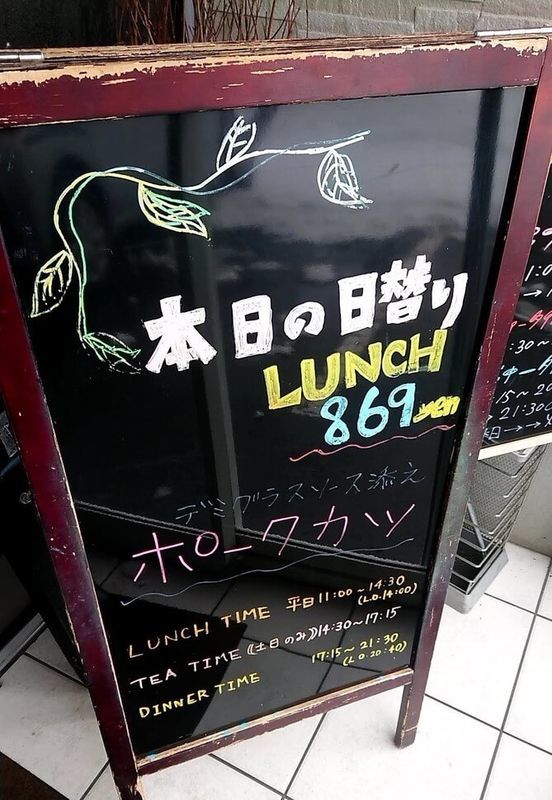 本日の日替り
LUNCH
869yen
デミグラスソース添え
ポークカツ
LUNCH TIME 平日11:00～14:30
(L.O.14:00)
TEA TIME (土日のみ)14:30～17:15
DINNER TIME 17:15～21:30
(L.O.20:40)